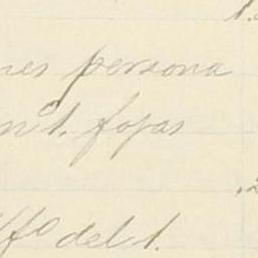 1.
nes persona
n 1. fojas
.2
ffo del 1.